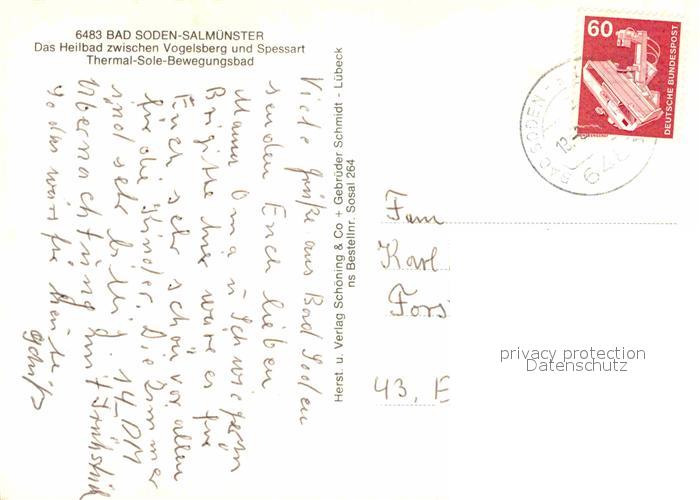 6483 BAD SODEN-SALMÜNSTER
Das Heilbad zwischen Vogelsberg und Spessart
Thermal-Sole-Bewegungsbad
Viele Grüße aus Bad Soden
senden Euch lieben
Mama Oma u Schwiegerm
Brigitte hier wäre es für
Euch sehr schön vor allem
für die Kinder. Die Zimmer
sind sehr billig. 14,- DM
Übernachtung mit Frühstück
So das wärs für heute
Herst. u. Verlag Schöning & Co + Gebrüder Schmidt - Lübeck
ns Bestellnr. Sosal 264
60
DEUTSCHE BUNDESPOST
BAD SODEN -
648
Fam
Karl
Fors
43, E
privacy protection
Datenschutz